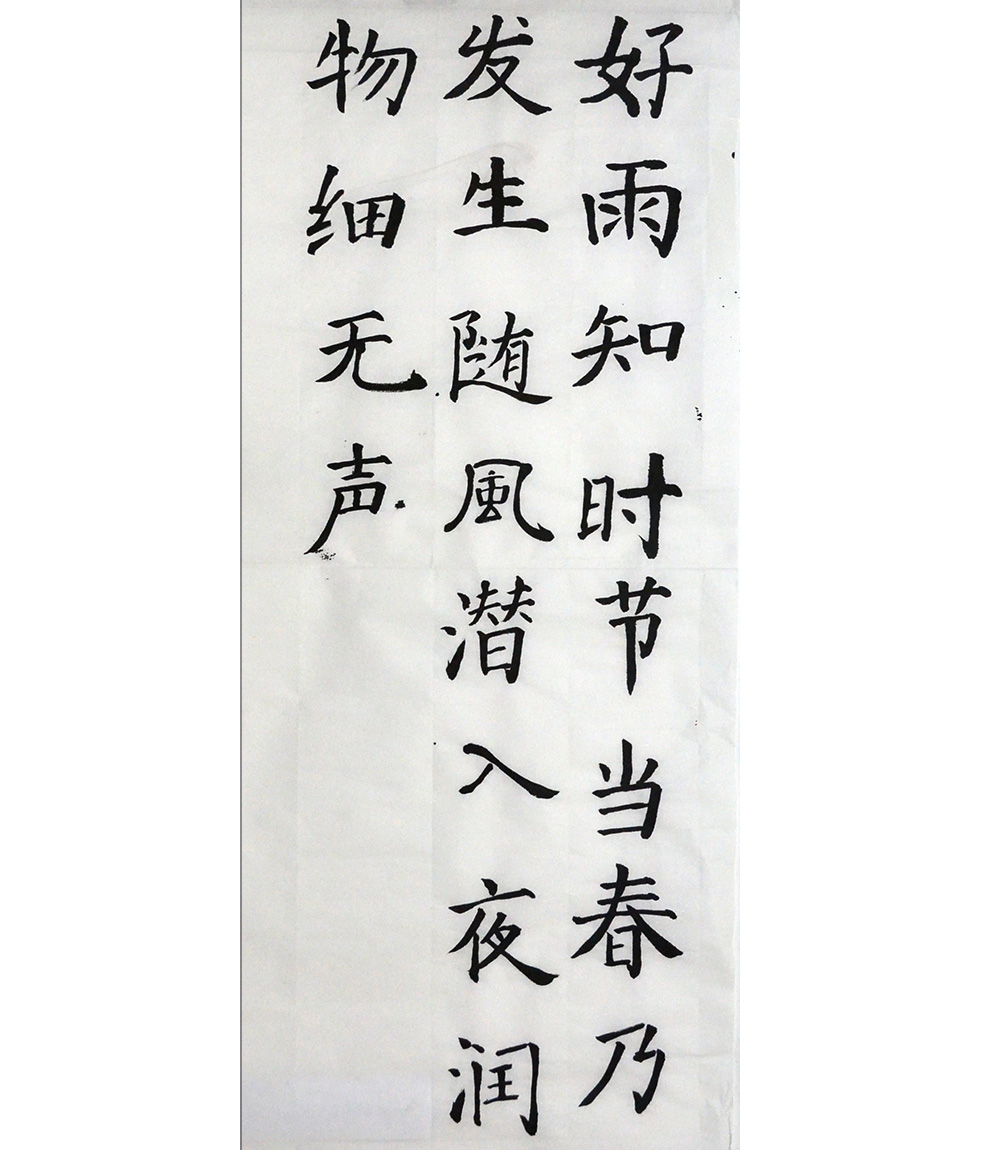 好雨知时节当春乃
发生随風潜入夜润
物细无声